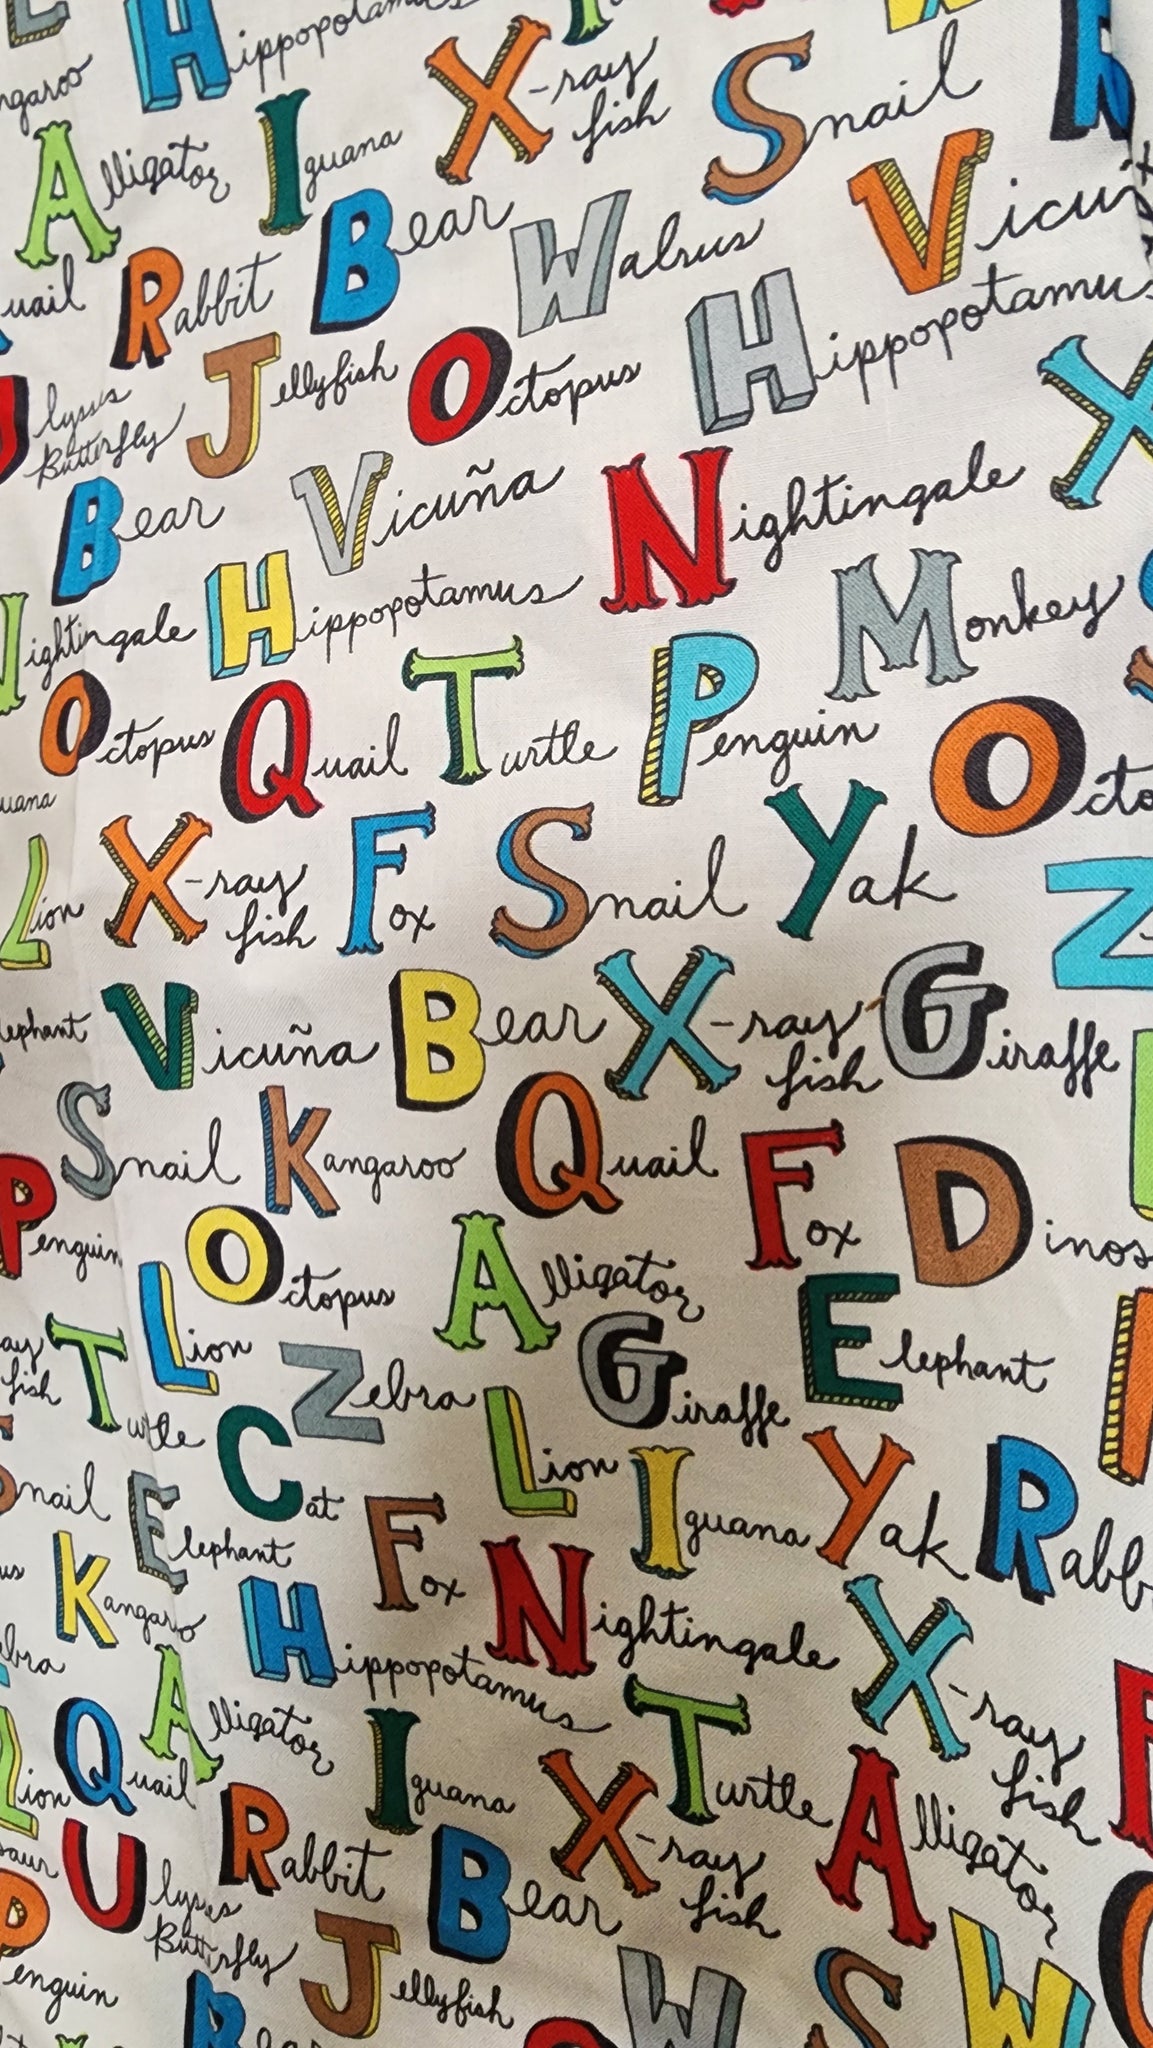 Hippopotamus
Alligator Iguana X-ray fish Snail
Rabbit Bear Walrus
Ulysses Butterfly Jellyfish Octopus Hippopotamus
Bear Vicuña Nightingale
Nightingale Hippopotamus Monkey
Octopus Quail Turtle Penguin
Lion X-ray fish Fox Snail Yak
Vicuña Bear X-ray fish Giraffe
Snail Kangaroo Quail Fox
Penguin Octopus Alligator
Turtle Lion Zebra Giraffe Elephant
Snail Cat Lion Iguana Yak
Kangaroo Elephant Fox
Hippopotamus Nightingale X-ray fish
Lion Quail Alligator
Iguana X-ray fish Turtle Alligator
Ulysses Butterfly Rabbit Bear
Penguin Jellyfish